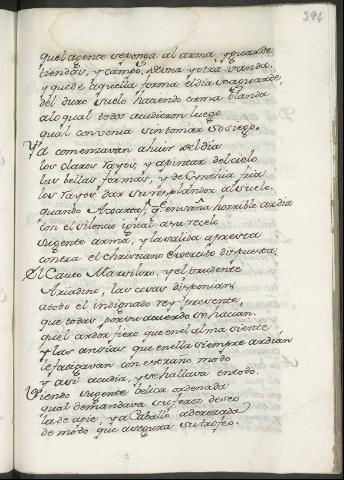 394
que la gente se ponga al arma y guarde
tiendas, y campo, de una y otra vanda.
y que de aquella forma el dia se aguarde,
del duro suelo haciendo cama blanda
a lo qual todos acudieron luego
qual convenia sin tomar sosiego.
Ya comenzavan a huir del dia
los claros rayos, y a pintar del cielo
las bellas formas, y de Cynthia fria
los rayos dar su resplandor al suelo.
quando que en saña horrible ardia
con el silencio igual a su recelo
su gente arma, y la valida apresta
contra el christiano exercito dispuesta
El Cauto y el prudente
Ariadino, las cosas disponian,
a todo el indignado rey presente,
que todas por su acuerdo se hacian.
qu el ardor fiero que en el alma siente
y las ansias que en ella siempre ardian
le fatigavan con estraño modo
y assi acudia, y se hallava en todo.
Viendo su gente belica ordenada
qual demandava su feroz deseo
la de a pie, y a Caballo aderezada
de modo que asegura su trofeo.